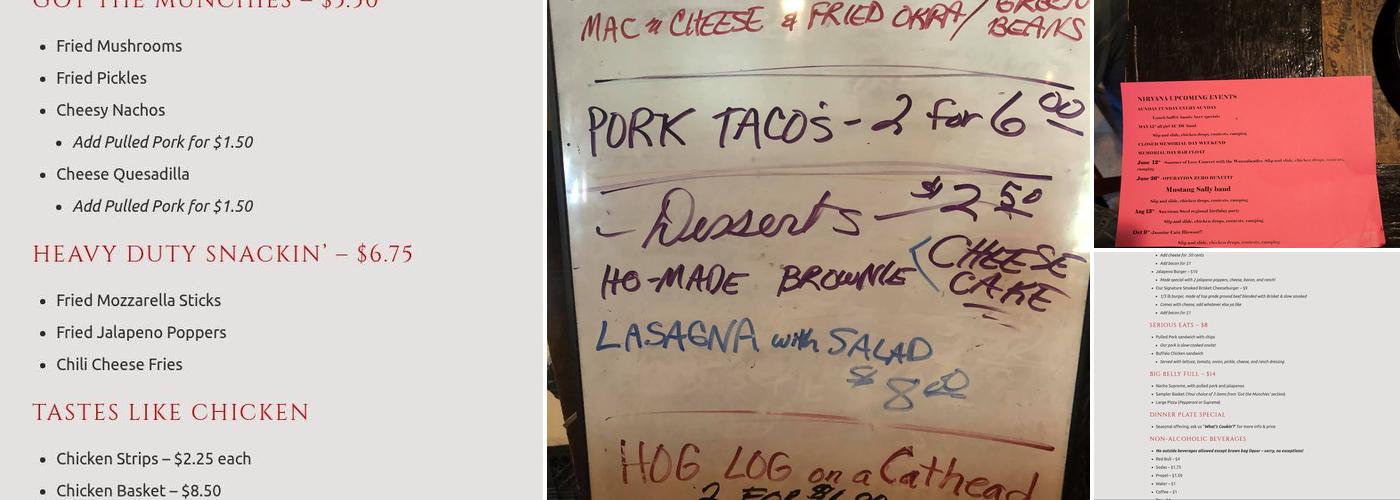 GOT THE MUNCHIES – $5.50
Fried Mushrooms
Fried Pickles
Cheesy Nachos
Add Pulled Pork for $1.50
Cheese Quesadilla
Add Pulled Pork for $1.50
HEAVY DUTY SNACKIN' – $6.75
Fried Mozzarella Sticks
Fried Jalapeno Poppers
Chili Cheese Fries
TASTES LIKE CHICKEN
Chicken Strips – $2.25 each
Chicken Basket – $8.50
MAC n CHEESE & FRIED OKRA / GREEN BEANS
PORK TACO's - 2 for 6 00
- Desserts - $2 50
HO-MADE BROWNIE < CHEESE CAKE
LASAGNA with SALAD
$8 00
HOG LOG on a Cathead
2 FOR $
NIRVANA UPCOMING EVENTS
SUNDAY FUNDAY EVERY SUNDAY
Lunch buffet beer specials
MAY 15th all girl AC/DC band
Slip and slide, chicken drops, contests, camping
CLOSED MEMORIAL DAY WEEKEND
MEMORIAL DAY BAR FLOAT
June 12th - Summer of Love Concert with the Wannabeatles. Slip and slide, chicken drops, contests, camping
June 26th - OPERATION ZERO BENEFIT
Mustang Sally band
Slip and slide, chicken drops, contests, camping
Aug 15th - American Steel regional birthday party
Slip and slide, chicken drops, contests, camping
Oct 9th - Jasmine Cain Blowout!!
Slip and slide, chicken drops, contests, camping
Add cheese for .50 cents
Add bacon for $1
Jalapeno Burger – $10
Made special with 2 jalapeno poppers, cheese, bacon, and ranch!
Our Signature Smoked Brisket Cheeseburger – $9
1/3 lb burger, made of top grade ground beef blended with Brisket & slow smoked
Comes with cheese, add whatever else ya like
Add bacon for $1
SERIOUS EATS – $8
Pulled Pork sandwich with chips
Our pork is slow-cooked onsite!
Buffalo Chicken sandwich
Served with lettuce, tomato, onion, pickle, cheese, and ranch dressing
BIG BELLY FULL – $14
Nacho Supreme, with pulled pork and jalapenos
Sampler Basket (Your choice of 3 items from 'Got the Munchies' section)
Large Pizza (Pepperoni or Supreme)
DINNER PLATE SPECIAL
Seasonal offering, ask us "What's Cookin'?" for more info & price
NON-ALCOHOLIC BEVERAGES
No outside beverages allowed except brown bag liquor – sorry, no exceptions!
Red Bull – $4
Sodas – $1.75
Propel – $1.50
Water – $1
Coffee – $1